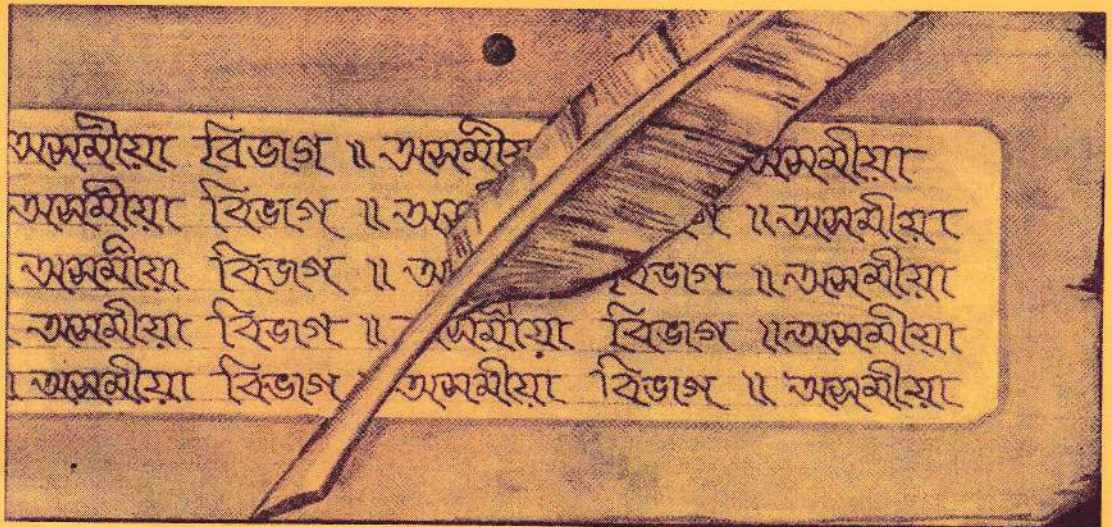 অসমীয়া বিভাগ ॥ অসমীয়া অসমীয়া
অসমীয়া বিভাগ ॥ ॥ অসমীয়া
অসমীয়া বিভাগ ॥ বিভাগ ॥ অসমীয়া
অসমীয়া বিভাগ ॥ অসমীয়া বিভাগ ॥ অসমীয়া
॥ অসমীয়া বিভাগ ॥ অসমীয়া বিভাগ ॥ অসমীয়া